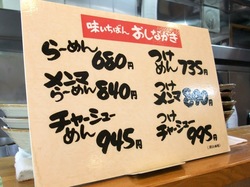 味いちばん おしながき
らーめん 680円
メンマらーめん 840円
チャーシューめん 945円
つけめん 735円
つけメンマ 890円
つけチャーシュー 995円